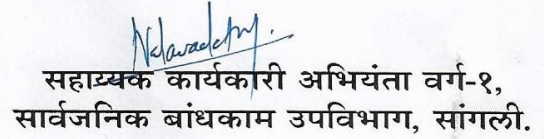 सहाय्यक कार्यकारी अभियंता वर्ग-१,
सार्वजनिक बांधकाम उपविभाग, सांगली.